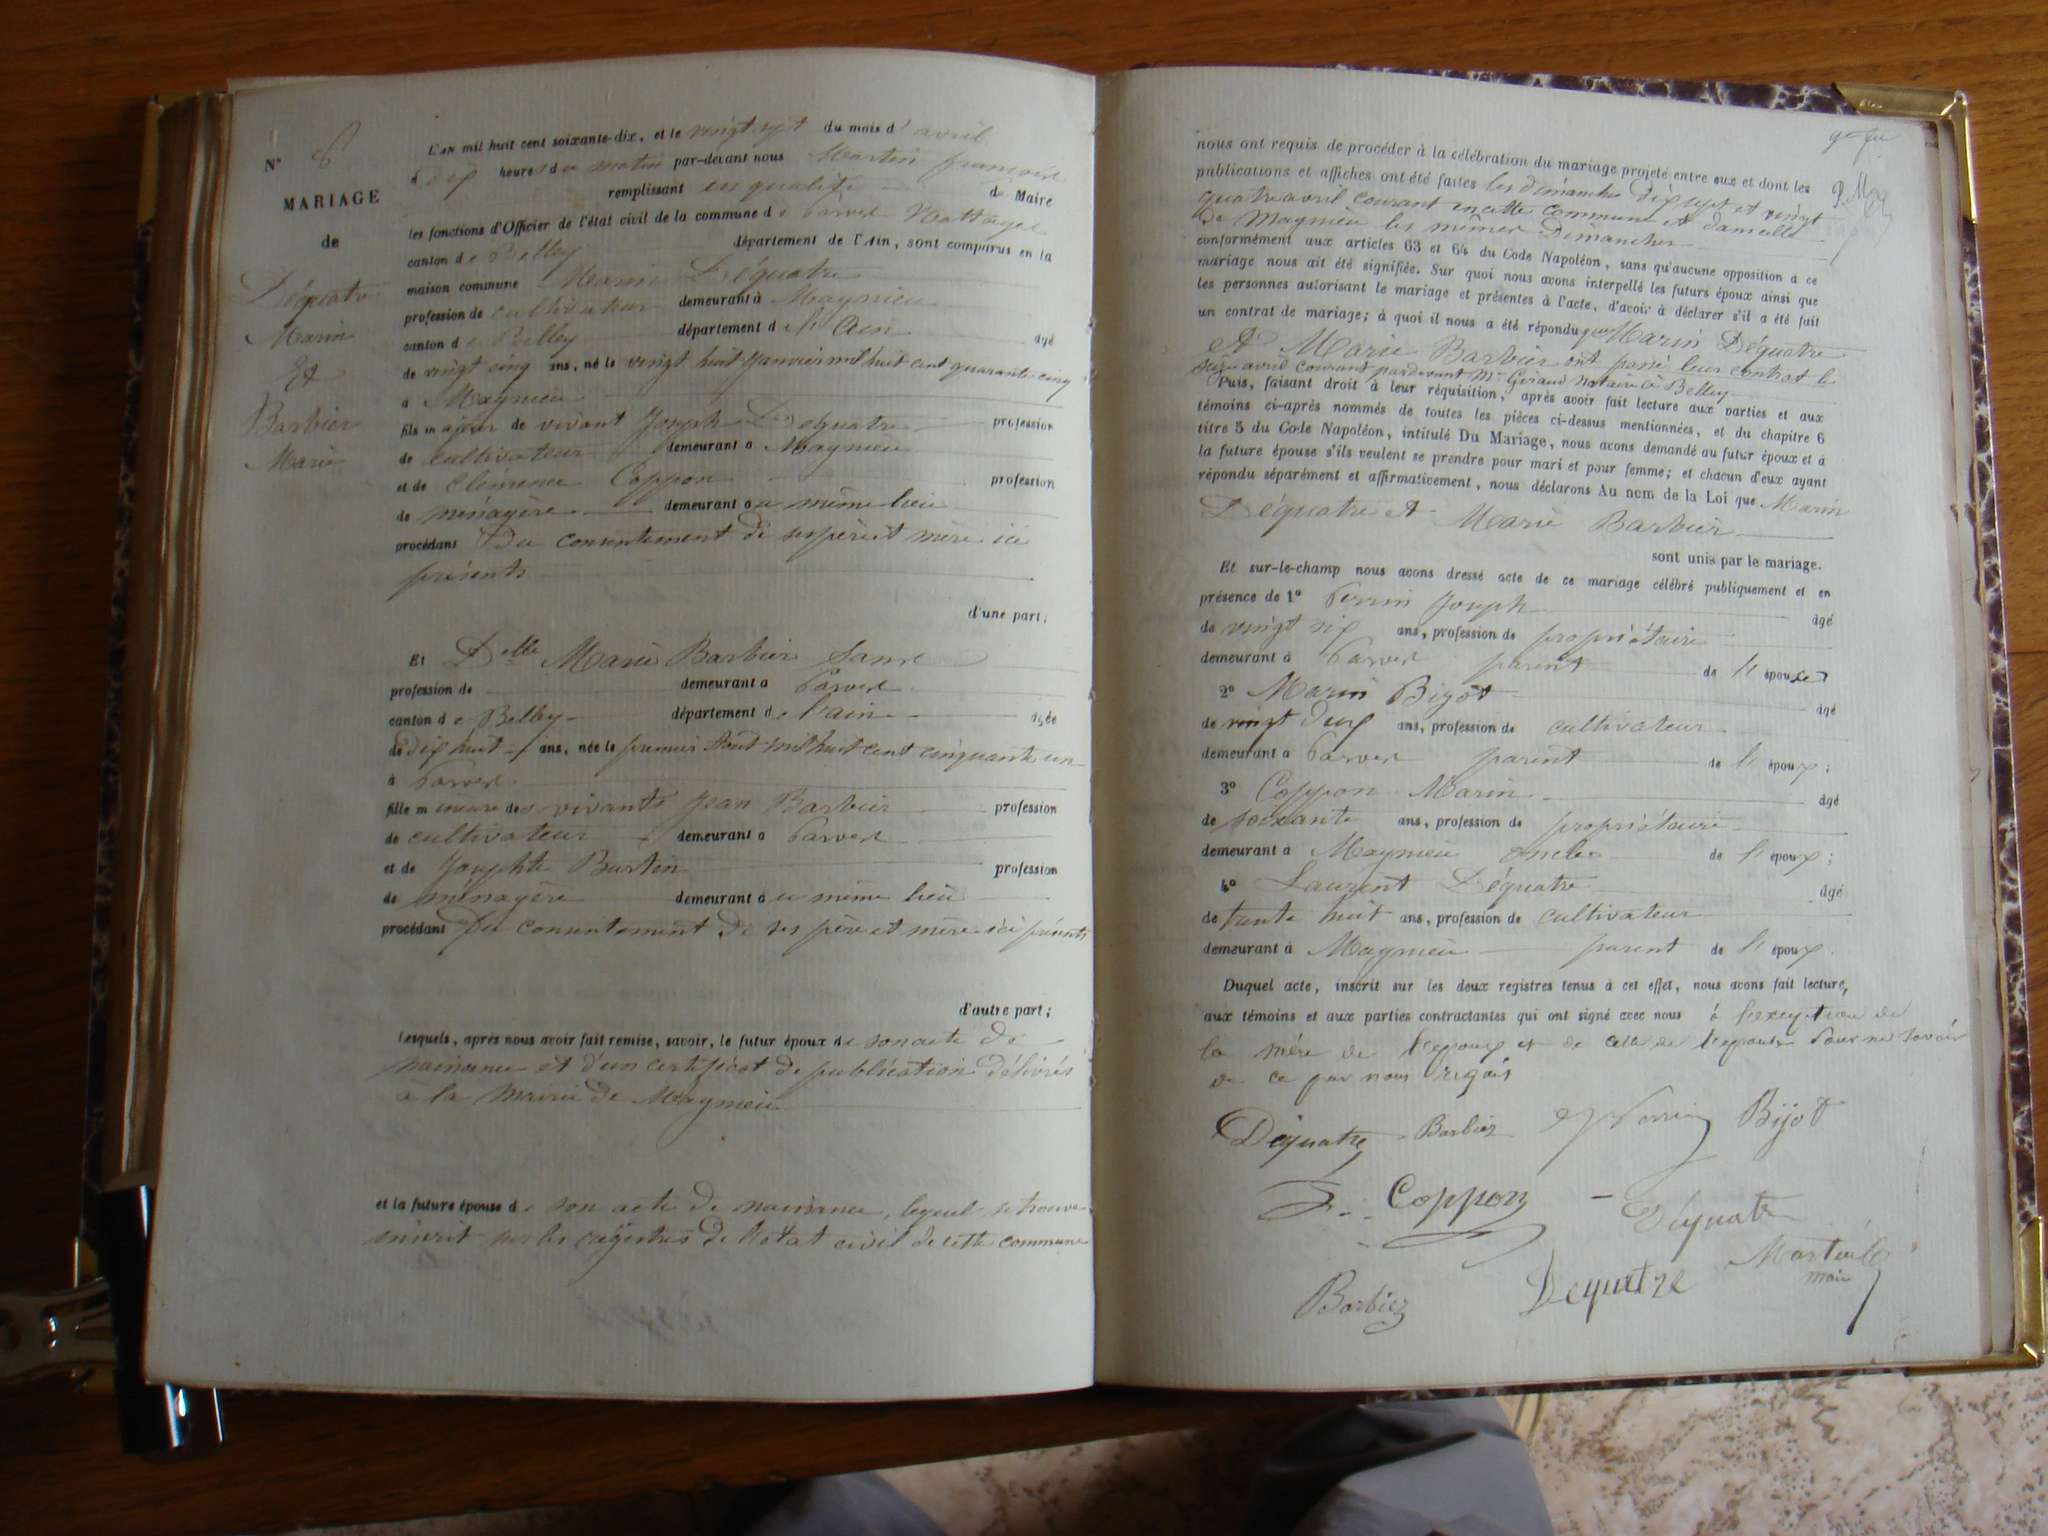 N° 6
MARIAGE
de
Déquatre
Marin
Et
Barbier
Marie
L'an mil huit cent soixante-dix, et le vingt sept du mois d'avril
dix heures du matin par-devant nous Martin françois
remplissant en qualité de Maire
les fonctions d'Officier de l'état civil de la commune de Parves Nattages
canton de Belley département de l'Ain, sont comparus en la
maison commune Marin Déquatre
profession de cultivateur demeurant à Magnieu
canton de Belley département de l'Ain âgé
de vingt cinq ans, né le vingt huit Janvier mil huit cent quarante cinq
à Magnieu
fils majeur de vivant Joseph Déquatre profession
de cultivateur demeurant à Magnieu
et de Clémence Coppon profession
de ménagère demeurant à a même lieu
procédant Du consentement de ses père et mère ici
présents
d'une part;
Et Delle Marie Barbier Sans
profession de demeurant à Parves
canton de Belley département de l'ain âgée
de dix huit ans, née le premier Août mil huit cent cinquante un
à Parves
fille mineure des vivants Jean Barbier profession
de cultivateur demeurant à Parves
et de Josephte Burtin profession
de ménagère demeurant à même lieu
procédant Du consentement de ses père et mère ici présents
d'autre part;
Lesquels, après nous avoir fait remise, savoir, le futur époux de son acte de
naissance et d'un certificat de publication délivrés
à la mairie de Magnieu
et la future épouse de son acte de naissance, lequel se trouve
inscrit sur les régistres de l'état civil de cette commune
nous ont requis de procéder à la célébration du mariage projeté entre eux et dont les
publications et affiches ont été faites les dimanches dix sept et vingt
quatre avril courant en cette commune et dans celle
de Magnieu les mêmes Dimanches
conformément aux articles 63 et 64 du Code Napoléon, sans qu'aucune opposition à ce
mariage nous ait été signifiée. Sur quoi nous avons interpellé les futurs époux ainsi que
les personnes autorisant le mariage et présentes à l'acte, d'avoir à déclarer s'il a été fait
un contrat de mariage; à quoi il nous a été répondu que Marin Déquatre
et Marie Barbier ont passé leur contrat le
seize avril courant pardevant Me Giraud Notaire à Belley
Puis, faisant droit à leur réquisition, après avoir fait lecture aux parties et aux
témoins ci-après nommés de toutes les pièces ci-dessus mentionnées, et du chapitre 6
titre 5 du Code Napoléon, intitulé Du Mariage, nous avons demandé au futur époux et à
la future épouse s'ils veulent se prendre pour mari et pour femme; et chacun d'eux ayant
répondu séparément et affirmativement, nous déclarons Au nom de la Loi que Marin
Déquatre et Marie Barbier
sont unis par le mariage.
Et sur-le-champ nous avons dressé acte de ce mariage célébré publiquement et en
présence de 1° Perrin Joseph âgé
de vingt six ans, profession de propriétaire
demeurant à Parves parent de l'épouse
2° Marin Bijot âgé
de vingt deux ans, profession de cultivateur
demeurant à Parves parent de l'époux;
3° Coppon Marin âgé
de soixante ans, profession de propriétaire
demeurant à Magnieu oncle de l'époux;
4° Laurent Déquatre âgé
de trente huit ans, profession de cultivateur
demeurant à Magnieu parent de l'époux.
Duquel acte, inscrit sur les deux registres tenus à cet effet, nous avons fait lecture,
aux témoins et aux parties contractantes qui ont signé avec nous à l'exception de
la mère de l'époux et de celle de l'épouse pour ne savoir
de ce par nous requis
Déquatre Barbier Perrin Bijot
Coppon Déquatre
Barbier Dequatre
maire